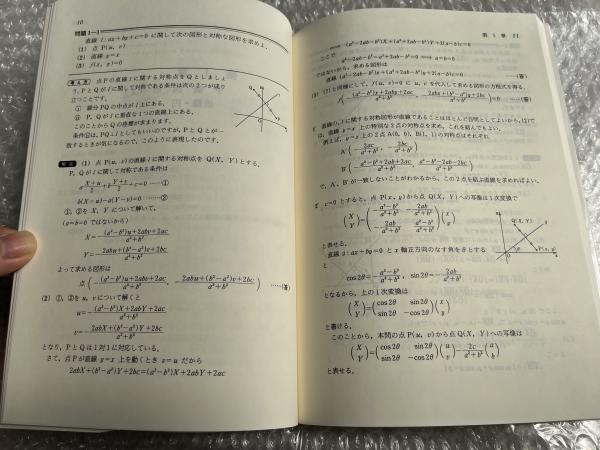 10
問題1―1
直線 l:ax+by+c=0 に関して次の図形と対称な図形を求めよ.
(1) 点 P(u, v)
(2) 直線 y=x
(3) f(x, y)=0
考え方 点Pの直線 l に関する対称点をQとしましょ
う. P, Qが l に関して対称である条件は次の2つが成り
立つことです.
① 線分PQの中点が l 上にある.
② P, Qが l に垂直な1つの直線上にある.
このことからQの座標が定まります.
条件②は, PQ⊥l としてもいいのですが, PとQとが一
致するときが気になるので, このように表現したのです.
解答 (1) 点 P(u, v)の直線 l に関する対称点を Q(X, Y)とする.
P, Qが l に関して対称である条件は
a(X+u)/2+b(Y+v)/2+c=0 ……①
b(X-u)-a(Y-v)=0 ……②
①, ②を X, Y について解いて,
(a=b=0 ではないから)
X=-((a²-b²)u+2abv+2ac)/(a²+b²)
Y=-(2abu+(b²-a²)v+2bc)/(a²+b²)
よって求める図形は
点(-((a²-b²)u+2abv+2ac)/(a²+b²), -(2abu+(b²-a²)v+2bc)/(a²+b²)) ……(答)
(2) ①, ②を u, v について解くと
u=-((a²-b²)X+2abY+2ac)/(a²+b²)
v=-(2abX+(b²-a²)Y+2bc)/(a²+b²)
となり, PとQは1対1に対応している.
さて, 点Pが直線 y=x 上を動くとき v=u だから
2abX+(b²-a²)Y+2bc=(a²-b²)X+2abY+2ac
第1章 11
(a²-2ab-b²)X+(a²+2ab-b²)Y+2(a-b)c=0
ここで
a²-2ab-b²=a²+2ab-b²=0 ⟺ a=b=0
ではないから, 求める図形は
直線 (a²-2ab-b²)x+(a²+2ab-b²)y+2(a-b)c=0 ……(答)
(3) (2)と同様にして, f(u, v)=0 に u, v を代入して求める図形の方程式を得る.
f(-((a²-b²)x+2aby+2ac)/(a²+b²), -(2abx+(b²-a²)y+2bc)/(a²+b²))=0 ……(答)
直線の, l に関する対称図形が直線であることはほとんど自明としてよいから, (2)で
は, 直線 y=x 上の特別な2点の対称点を求め, これを結んでもよい.
例えば, y=x 上の2点 A(0, 0), B(1, 1)の対称点はそれぞれ
A′(-2ac/(a²+b²), -2bc/(a²+b²))
B′(-(a²-b²+2ab+2ac)/(a²+b²), (a²-b²-2ab-2bc)/(a²+b²))
で, A′, B′が一致しないことがわかるから, この2点を結ぶ直線を求めればよい.
c=0 とすると, 点 P(x, y)から点 Q(X, Y)への写像は1次変換で
(X Y)=(-(a²-b²)/(a²+b²) -2ab/(a²+b²) -2ab/(a²+b²) (a²-b²)/(a²+b²))(x y)
Q(X, Y)
P(x, y)
と表せる.
直線 g:ax+by=0 と x 軸正方向のなす角をθとする
と
cos2θ=-(a²-b²)/(a²+b²), sin2θ=-2ab/(a²+b²)
となるから, 上の1次変換は
(X Y)=(cos2θ sin2θ sin2θ -cos2θ)(x y)
と書ける.
このことから, 本問の点P(u, v)から点Q(X, Y)への写像は
(X Y)=(cos2θ sin2θ sin2θ -cos2θ)(u v)-2c/(a²+b²)(a b)
と表せる.